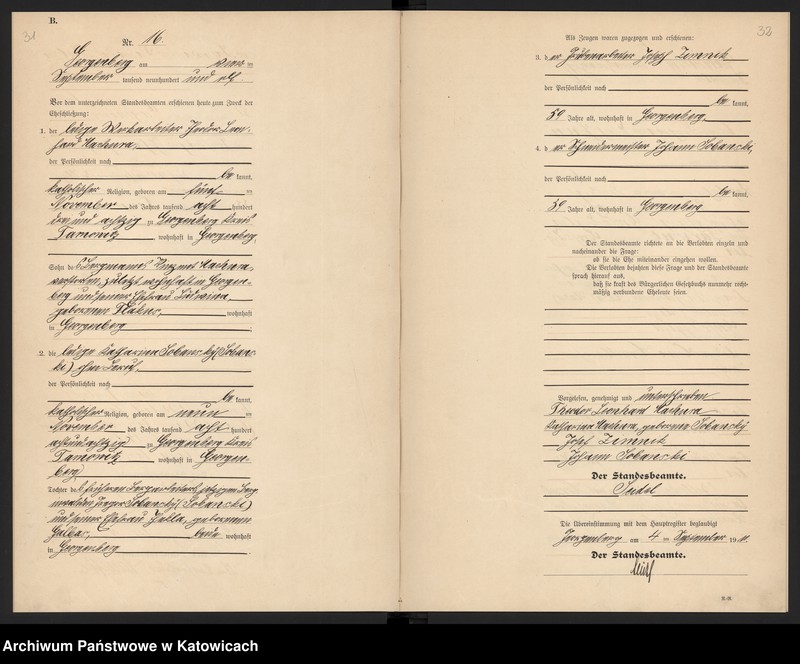 B.
31
Nr. 16.
Georgenberg am vier ten
September tausend neunhundert und elf.
Vor dem unterzeichneten Standesbeamten erschienen heute zum Zweck der
Eheschließung:
1. der ledige Theodor Leon-
hard Machura,
der Persönlichkeit nach
be kannt,
katholischer Religion, geboren am fünf ten
November des Jahres tausend acht hundert
drei und achtzig zu Georgenberg Kreis
Tarnowitz, wohnhaft in Georgenberg,
Sohn des Bergmanns Machura,
verstorben, zuletzt wohnhaft in Georgen-
berg und seiner Ehefrau
geborenen wohnhaft
in Georgenberg.
2. die ledige Katharina Sobanský (Soban-
ski) ohne Beruf
der Persönlichkeit nach
be kannt,
katholischer Religion, geboren am neun ten
November des Jahres tausend acht hundert
achtundachtzig zu Georgenberg Kreis
Tarnowitz, wohnhaft in Georgen-
berg
Tochter des früheren Bergarbeiters, jetzigen Berg-
invaliden Sobanský (Sobanski)
und seiner Ehefrau geborenen
beide wohnhaft
in Georgenberg.
32
Als Zeugen waren zugezogen und erschienen:
3. d er Grubenarbeiter Josef
der Persönlichkeit nach
be kannt,
59 Jahre alt, wohnhaft in Georgenberg
4. d er Schneidermeister Johann Sobanski,
der Persönlichkeit nach
be kannt,
59 Jahre alt, wohnhaft in Georgenberg
Der Standesbeamte richtete an die Verlobten einzeln und
nacheinander die Frage:
ob sie die Ehe miteinander eingehen wollen.
Die Verlobten bejahten diese Frage und der Standesbeamte
sprach hierauf aus,
daß sie kraft des Bürgerlichen Gesetzbuchs nunmehr recht-
mäßig verbundene Eheleute seien.
Vorgelesen, genehmigt und unterschrieben
Theodor Leonhard Machura
Katharina Machura, geborene Sobanský
Josef
Johann Sobanski
Der Standesbeamte.
Seidel
Die Übereinstimmung mit dem Hauptregister beglaubigt
Georgenberg am 4 ten September 19 11.
Der Standesbeamte.
Archiwum Państwowe w Katowicach